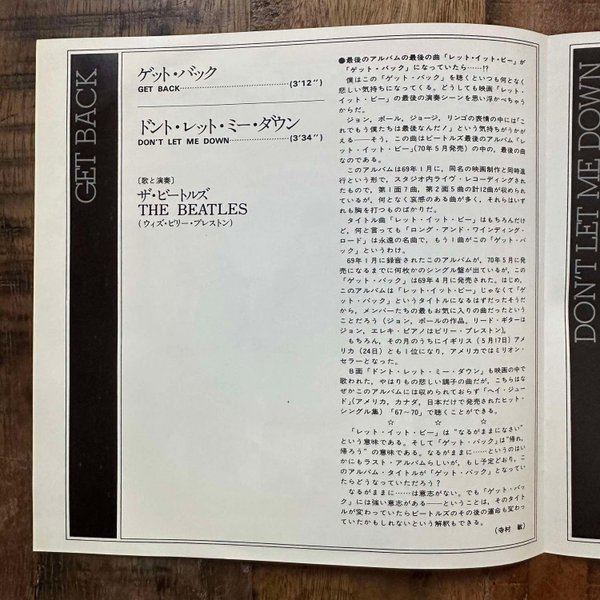 GET BACK
ゲット・バック
GET BACK (3'12")
ドント・レット・ミー・ダウン
DON'T LET ME DOWN (3'34")
〔歌と演奏〕
ザ・ビートルズ
THE BEATLES
(ウィズ・ビリー・プレストン)
●最後のアルバムの最後の曲「レット・イット・ビー」が
「ゲット・バック」になっていたら……!?
僕はこの「ゲット・バック」を聴くといつも何となく
悲しい気持ちになってくる。どうしても映画「レット・
イット・ビー」の最後の演奏シーンを思い浮かべちゃう
からだ。
ジョン、ポール、ジョージ、リンゴの表情の中には「こ
れでもう僕たちは最後なんだ!」という気持ちがうかが
える——そう、この曲はビートルズ最後のアルバム「レ
ット・イット・ビー」('70年5月発売)の中の、最後の曲
なのである。
このアルバムは69年1月に、同名の映画制作と同時進
行という形で、スタジオ内ライヴ・レコーディングされ
たもので、第1面7曲、第2面5曲の計12曲が収められ
ているが、何となく哀感のある曲が多く、それらはいず
れも胸を打つものばかりだ。
タイトル曲「レット・イット・ビー」はもちろんだけ
ど、何と言っても「ロング・アンド・ワインディング・
ロード」は永遠の名曲で、もう1曲がこの「ゲット・バ
ック」というわけ。
69年1月に録音されたこのアルバムが、70年5月に発
売になるまでに何枚かのシングル盤が出ているが、この
「ゲット・バック」は69年4月に発売された。はじめ、
このアルバムは「レット・イット・ビー」じゃなくて「ゲ
ット・バック」というタイトルになるはずだったそうだ
から、メンバーたちの最もお気に入りの曲だったという
ことだろう(ジョン、ポールの作品、リード・ギターは
ジョン、エレキ・ピアノはビリー・プレストン)。
もちろん、その月のうちにイギリス(5月17日)アメ
リカ(24日)とも1位になり、アメリカではミリオン・
セラーとなった。
B面「ドント・レット・ミー・ダウン」も映画の中で
歌われた、やはりもの悲しい調子の曲だが、こちらはな
ぜかこのアルバムには収められておらず「ヘイ・ジュー
ド」(アメリカ、カナダ、日本だけで発売されたヒット・
シングル集)「'67〜'70」で聴くことができる。
☆ ☆ ☆
「レット・イット・ビー」は"なるがままになさい"
という意味である。そして「ゲット・バック」は"帰れ、
帰ろう"の意味である。なるがままに……というのはい
かにもラスト・アルバムらしいが、もし予定どおり、こ
のアルバム・タイトルが「ゲット・バック」となってい
たらどうなっていただろう?
なるがままに……は意志がない。でも「ゲット・バッ
ク」には強い意志がある——ということは、そのタイト
ルが変わっていたらビートルズのその後の運命も変わっ
ていたかもしれないという解釈もできる。
(寺村 敏)
DON'T LET ME DOWN